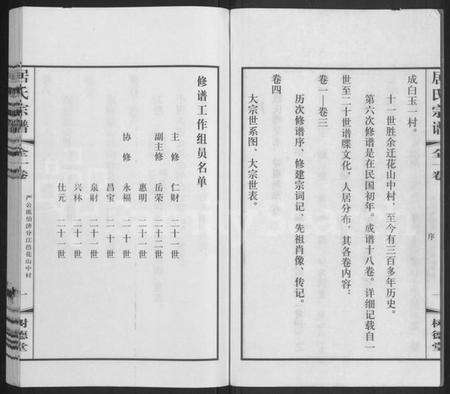 居氏宗谱
全一卷
序
一
树德堂
成白玉一村。
十一世胜余迁花山中村，至今有三百多年历史。
第六次修谱是在民国初年。成谱十八卷。详细记载自一
世至二十世谱牒文化，人居分布，其各卷内容：
卷一—卷三
历次修谱序、修建宗词记、先祖肖像、传记。
卷四
大宗世系图、大宗世表。
修谱工作组员名单
主修 仁财 二十一世
副主修 岳荣 二十二世
惠明 二十一世
协修 永福 二十一世
昌宝 二十一世
泉财 二十一世
兴林 二十一世
仕元 二十一世
居氏宗谱
全一卷
花山中村
一
树德堂